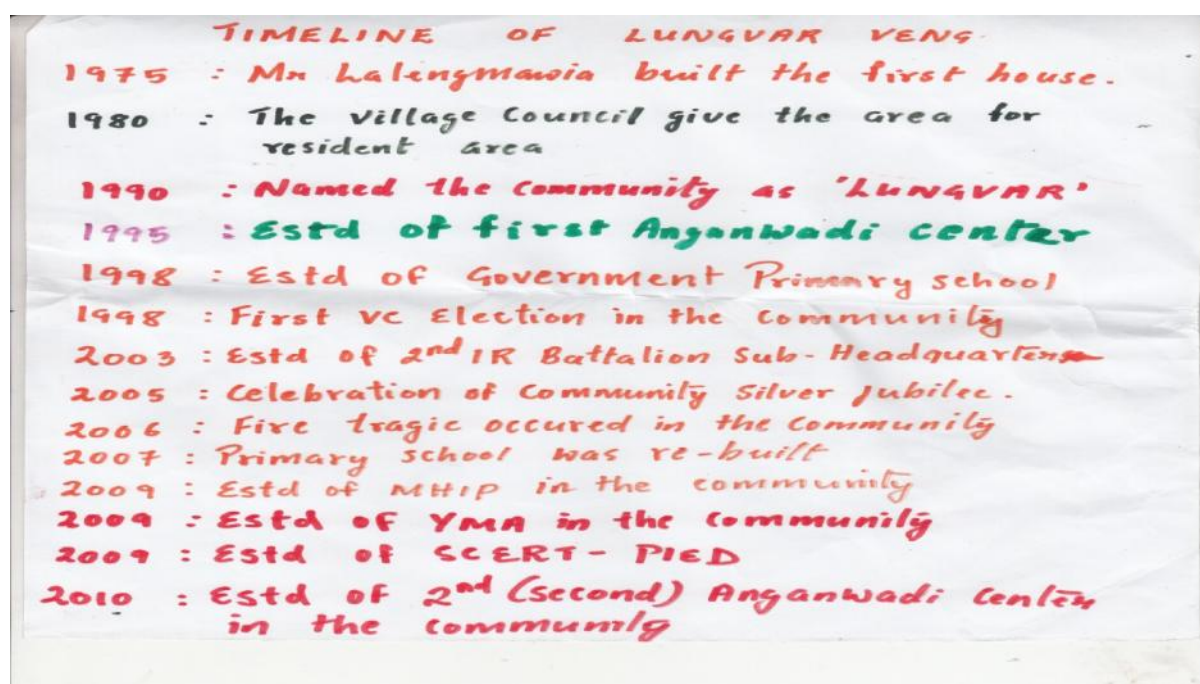 TIMELINE OF LUNGVAR VENG.
1975 : Mr Lalengmawia built the first house.
1980 : The Village Council give the area for
resident area
1990 : Named the community as 'LUNGVAR'
1995 : Estd of first Anganwadi center
1998 : Estd of Government Primary school
1998 : First VC Election in the community
2003 : Estd of 2nd IR Battalion Sub-Headquarters
2005 : Celebration of Community Silver Jubilee.
2006 : Fire tragic occured in the community
2007 : Primary school was re-built
2009 : Estd of MHIP in the community
2009 : Estd of YMA in the community
2009 : Estd of SCERT- PIED
2010 : Estd of 2nd (second) Anganwadi Center
in the community